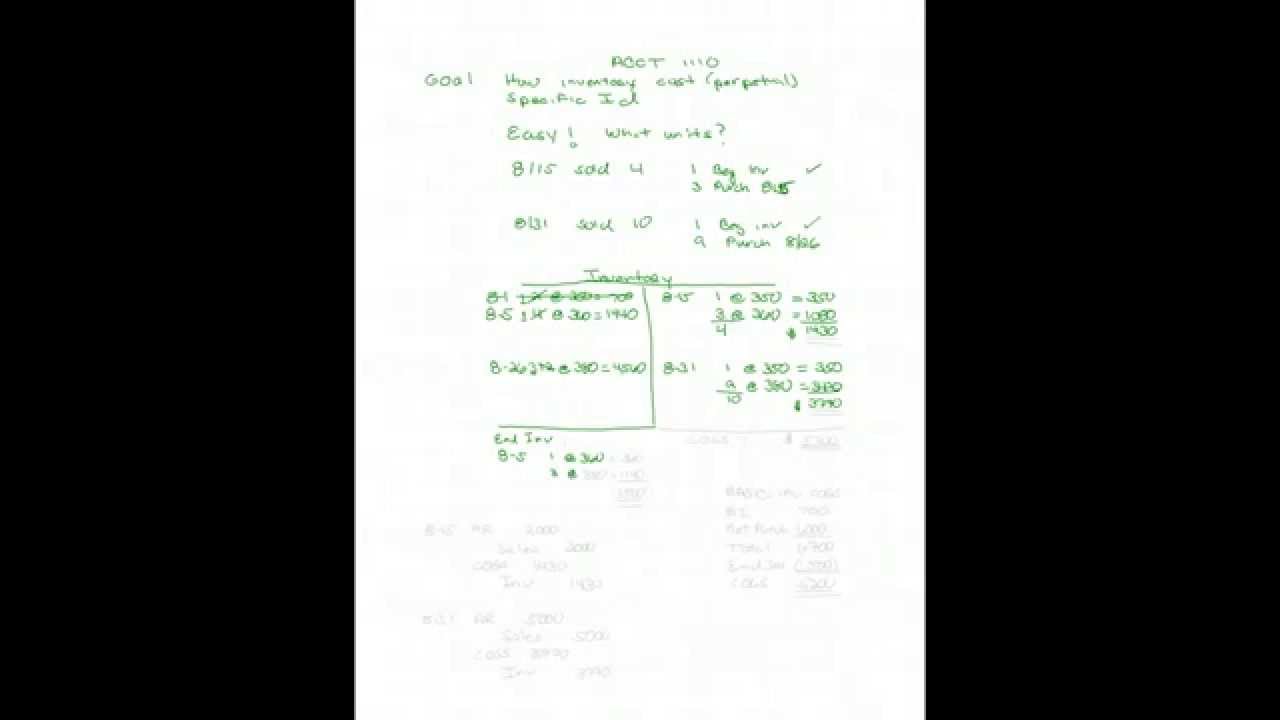 ACCT 1110
Goal How inventory cost (perpetual)
Specific Id
Easy! What units?
8/15 sold 4 1 Beg inv ✓
3 Purch 8-5
8/31 sold 10 1 Beg inv ✓
9 Purch 8/26
Inventory
8-1 @ 350 = 700 8-15 1 @ 350 = 350
8-5 @ 360 = 1440 3 @ 360 = 1080
4 $ 1430
8-26 @ 380 = 4560 8-31 1 @ 350 = 350
9 @ 380 = 3420
10 $ 3790
End Inv COGS $ 5200
8-5 1 @ 360 = 360
3 @ 380 = 1140
1500
BASIC INV COGS
BI 700
8-15 AR 2000 Net Purch 6000
Sales 2000 Total 6700
COGS 1430 End Inv (1500)
Inv 1430 COGS 5200
8-31 AR 5000
Sales 5000
COGS 3790
Inv 3790